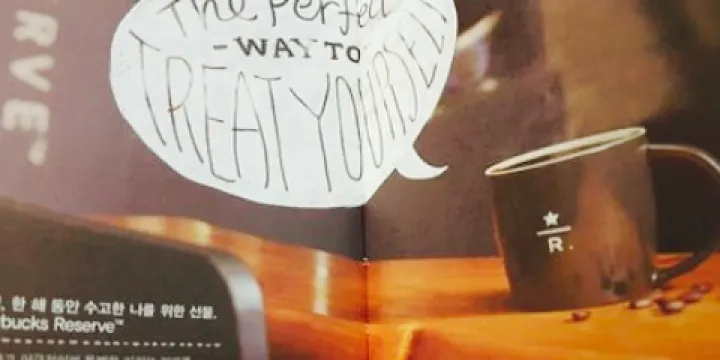 The Perfect
-WAY TO
TREAT YOURSELF
RVE™
R.
한 해 동안 수고한 나를 위한 선물.
bucks Reserve™